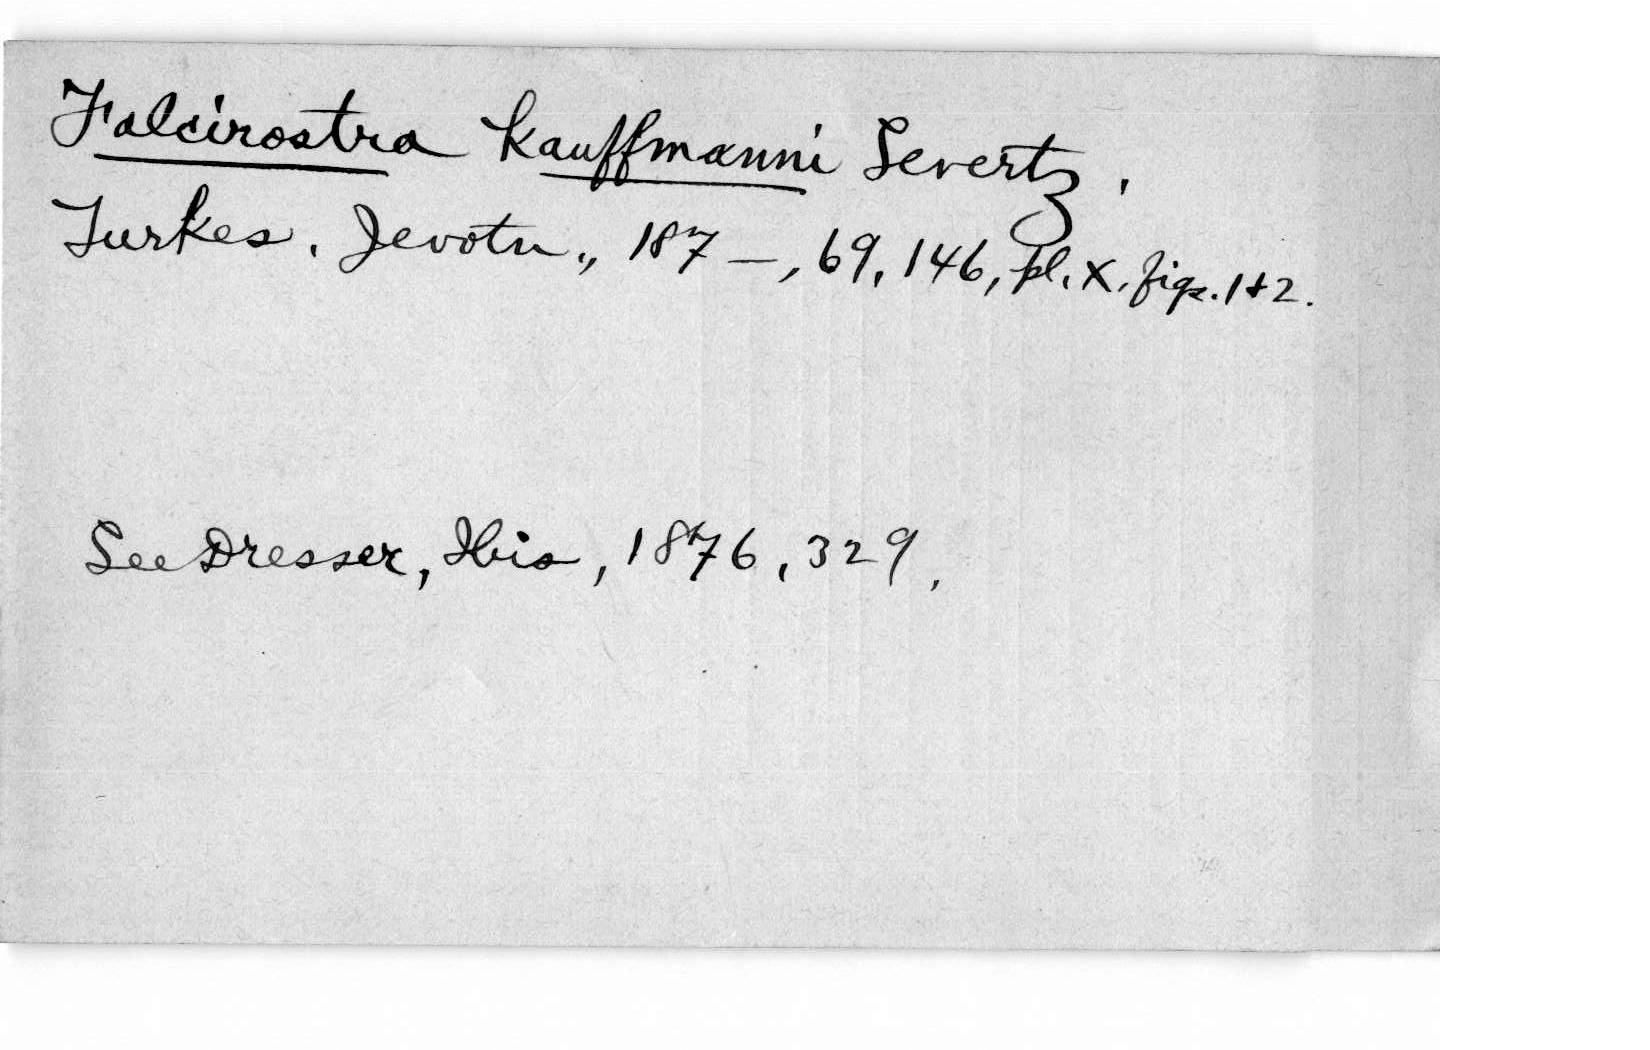 Falcirostra kauffmanni Severtz.
Turkes. Jevotn., 187–, 69, 146, pl. X, figs. 1+2.
See Dresser, Ibis, 1876, 329.